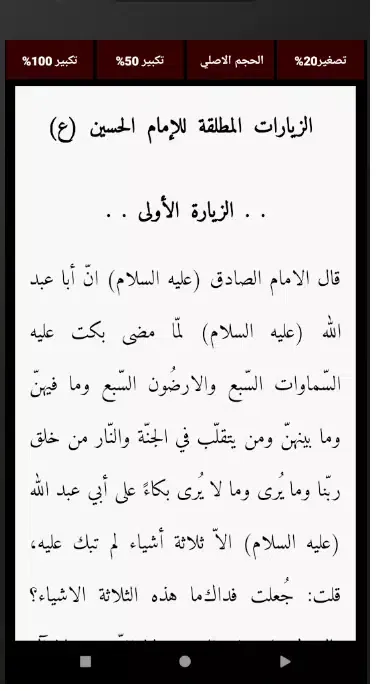 تصغير20% الحجم الاصلي تكبير 50% تكبير 100%
الزيارات المطلقة للإمام الحسين (ع)
. . الزيارة الأولى . .
قال الامام الصادق (عليه السلام) انّ أبا عبد
الله (عليه السلام) لمّا مضى بكت عليه
السّماوات السّبع والارضُون السّبع وما فيهنّ
وما بينهنّ ومن يتقلّب في الجنّة والنّار من خلق
ربّنا وما يُرى وما لا يُرى بكاءً على أبي عبد الله
(عليه السلام) الاّ ثلاثة أشياء لم تبك عليه،
قلت: جُعلت فداك‌ما هذه الثلاثة الاشياء؟